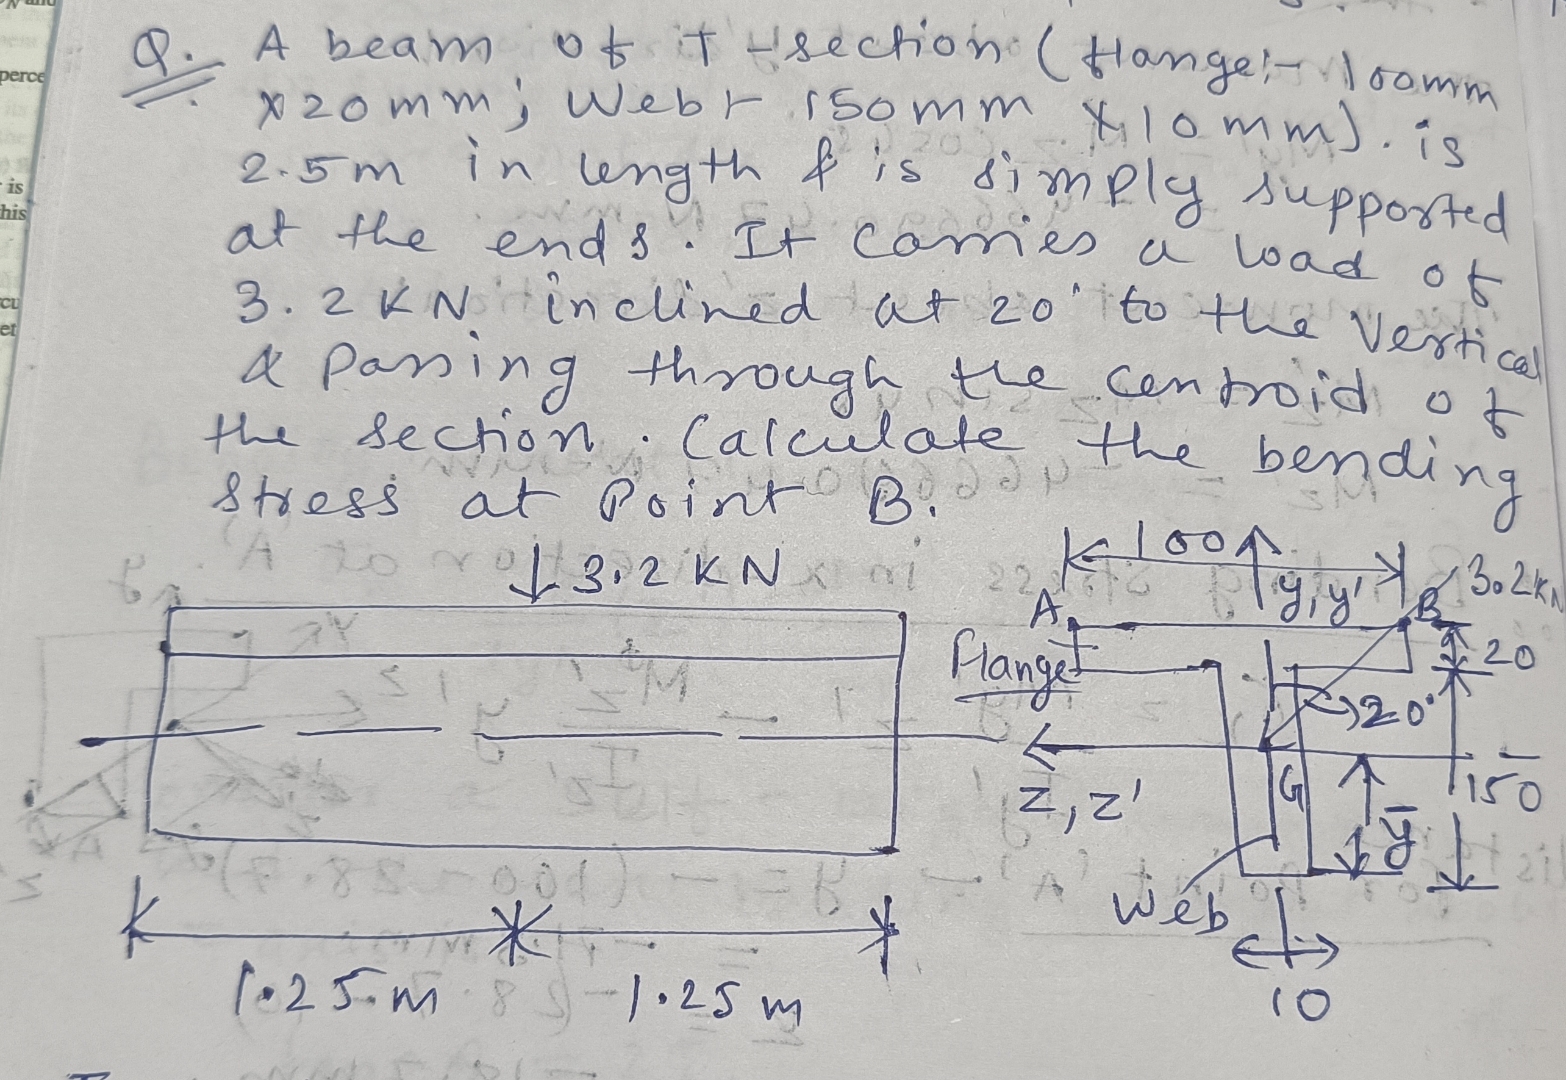 Q. A beam of T-section (flange:- 100mm
x20mm; Web:- 150mm x10mm). is
2.5m in length & is simply supported
at the ends. It carries a load of
3.2 KN inclined at 20° to the Vertical
& Passing through the centroid of
the section. Calculate the bending
stress at Point B.
↓3.2 KN
100
y,y'
3.2KN
A
B
Flange
20
20°
Z,Z'
G
150
ȳ
Web
10
1.25m
1.25m
perce
is
his
cu
et